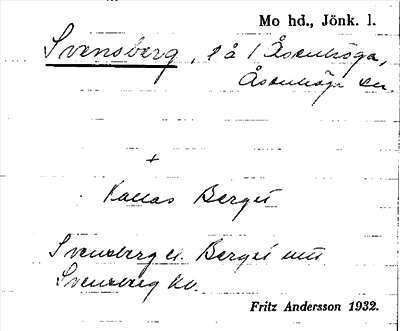 Mo hd., Jönk. l.
Svensberg, l å /Åsenhöga,
Åsenhöga sn.
+
Kallas Berget
Svensberg el. Berget
Svensberg
Fritz Andersson 1932.